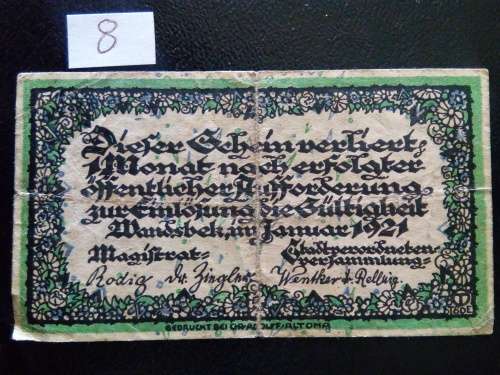 8
Dieser Schein verliert
1 Monat nach erfolgter
öffentlicher Aufforderung
zur Einlösung die Gültigkeit
Wandsbek, im Januar 1921
Magistrat- Stadtverordneten-
Versammlung-
Rodig Dr. Ziegler Wentker
GEDRUCKT BEI CHR. ADOLFF-ALTONA